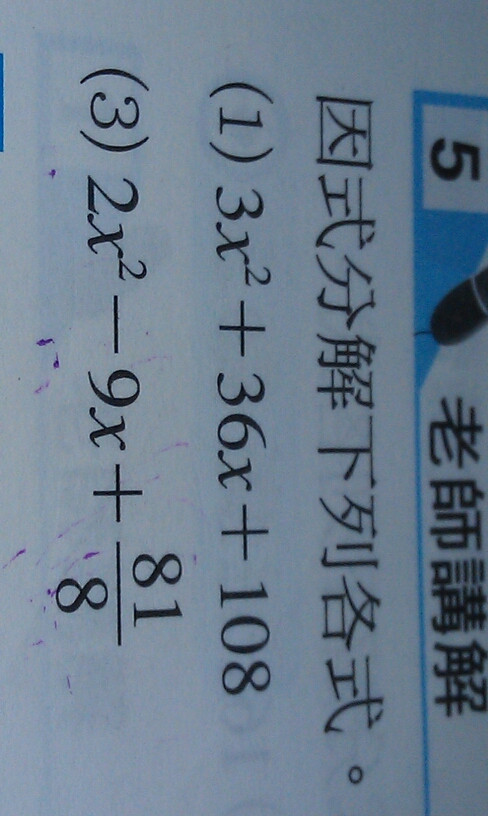 5 老師講解
因式分解下列各式。
(1) 3x² + 36x + 108
(3) 2x² − 9x + 81/8